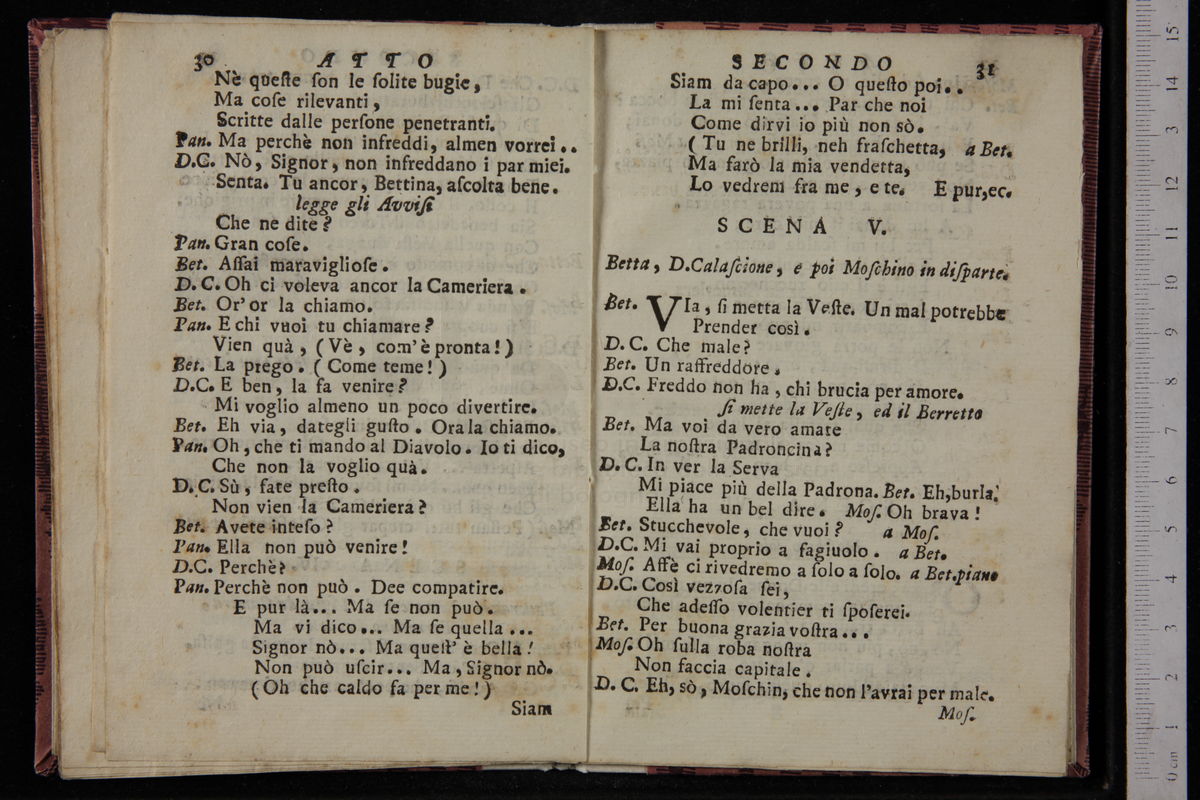 30 ATTO
Nè queſte ſon le ſolite bugie,
Ma coſe rilevanti,
Scritte dalle perſone penetranti.
Pan. Ma perchè non infreddi, almen vorrei..
D.C. Nò, Signor, non infreddano i par miei.
Senta. Tu ancor, Bettina, aſcolta bene.
legge gli Avviſi
Che ne dite?
Pan. Gran coſe.
Bet. Aſſai maraviglioſe.
D. C. Oh ci voleva ancor la Cameriera.
Bet. Or' or la chiamo.
Pan. E chi vuoi tu chiamare?
Vien quà, (Vè, com'è pronta!)
Bet. La prego. (Come teme!)
D.C. E ben, la fa venire?
Mi voglio almeno un poco divertire.
Bet. Eh via, dategli guſto. Ora la chiamo.
Pan. Oh, che ti mando al Diavolo. Io ti dico,
Che non la voglio quà.
D.C. Sù, fate preſto.
Non vien la Cameriera?
Bet. Avete inteſo?
Pan. Ella non può venire!
D.C. Perchè?
Pan. Perchè non può. Dee compatire.
E pur là... Ma ſe non può.
Ma vi dico... Ma ſe quella...
Signor nò... Ma queſt' è bella!
Non può uſcir... Ma, Signor nò.
(Oh che caldo fa per me!)
Siam
SECONDO 31
Siam da capo... O queſto poi..
La mi ſenta... Par che noi
Come dirvi io più non sò.
(Tu ne brilli, neh fraſchetta, a Bet.
Ma farò la mia vendetta,
Lo vedrem fra me, e te. E pur, ec.
SCENA V.
Betta, D.Calaſcione, e poi Moſchino in diſparte.
Bet. VIa, ſi metta la Veſte. Un mal potrebbe
Prender così.
D. C. Che male?
Bet. Un raffreddore.
D.C. Freddo non ha, chi brucia per amore.
ſi mette la Veſte, ed il Berretto
Bet. Ma voi da vero amate
La noſtra Padroncina?
D. C. In ver la Serva
Mi piace più della Padrona. Bet. Eh, burla!
Ella ha un bel dire. Moſ. Oh brava!
Bet. Stucchevole, che vuoi? a Moſ.
D.C. Mi vai proprio a fagiuolo. a Bet.
Moſ. Affè ci rivedremo a ſolo a ſolo. a Bet. piano
D.C. Così vezzoſa ſei,
Che adeſſo volentier ti ſpoſerei.
Bet. Per buona grazia voſtra...
Moſ. Oh ſulla roba noſtra
Non faccia capitale.
D. C. Eh, sò, Moſchin, che non l'avrai per male.
Moſ.